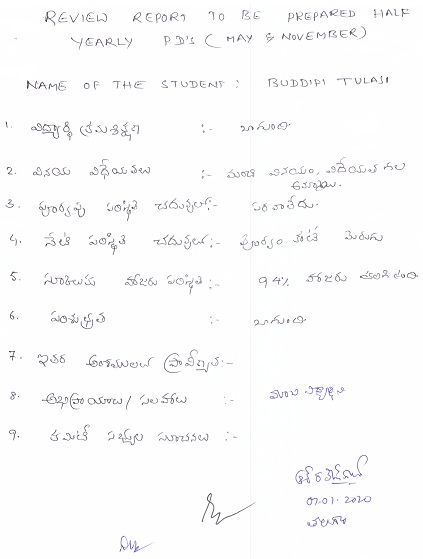 REVIEW REPORT TO BE PREPARED HALF
YEARLY P.D'S ( MAY & NOVEMBER)
NAME OF THE STUDENT : BUDDIPI TULASI
1. విద్యార్థి క్రమశిక్షణ :- బాగుంది
2. వినయ విధేయతలు :- మంచి వినయం, విదేయత గల
3. పూర్వపు పరిస్థితి చదువులో:- పరవాలేదు.
4. నేటి పరిస్థితి చదువులో:- పూర్వం కంటే మెరుగు
5. స్కూలుకు హాజరు పరిస్థితి :- 94% హాజరు కలిగి ఉంది
6. పరిశుభ్రత :- బాగుంది
7. ఇతర అంశములలో ప్రావీణ్యత:-
8. అభిప్రాయాలు/ సలహాలు :- మంచి విద్యార్థిని
9. కమిటీ సభ్యుల సూచనలు :-
07.01.2020